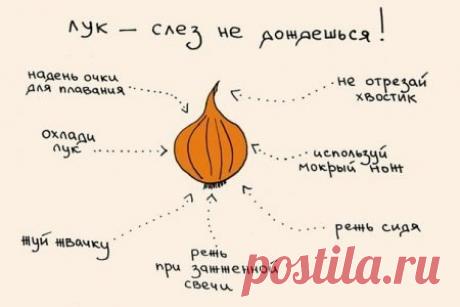 лук — слез не дождешься!
надень очки
для плавания
не отрезай
хвостик
охлади
лук
используй
мокрый нож
жуй жвачку
режь
при зажженной
свечи
режь сидя
postila.ru